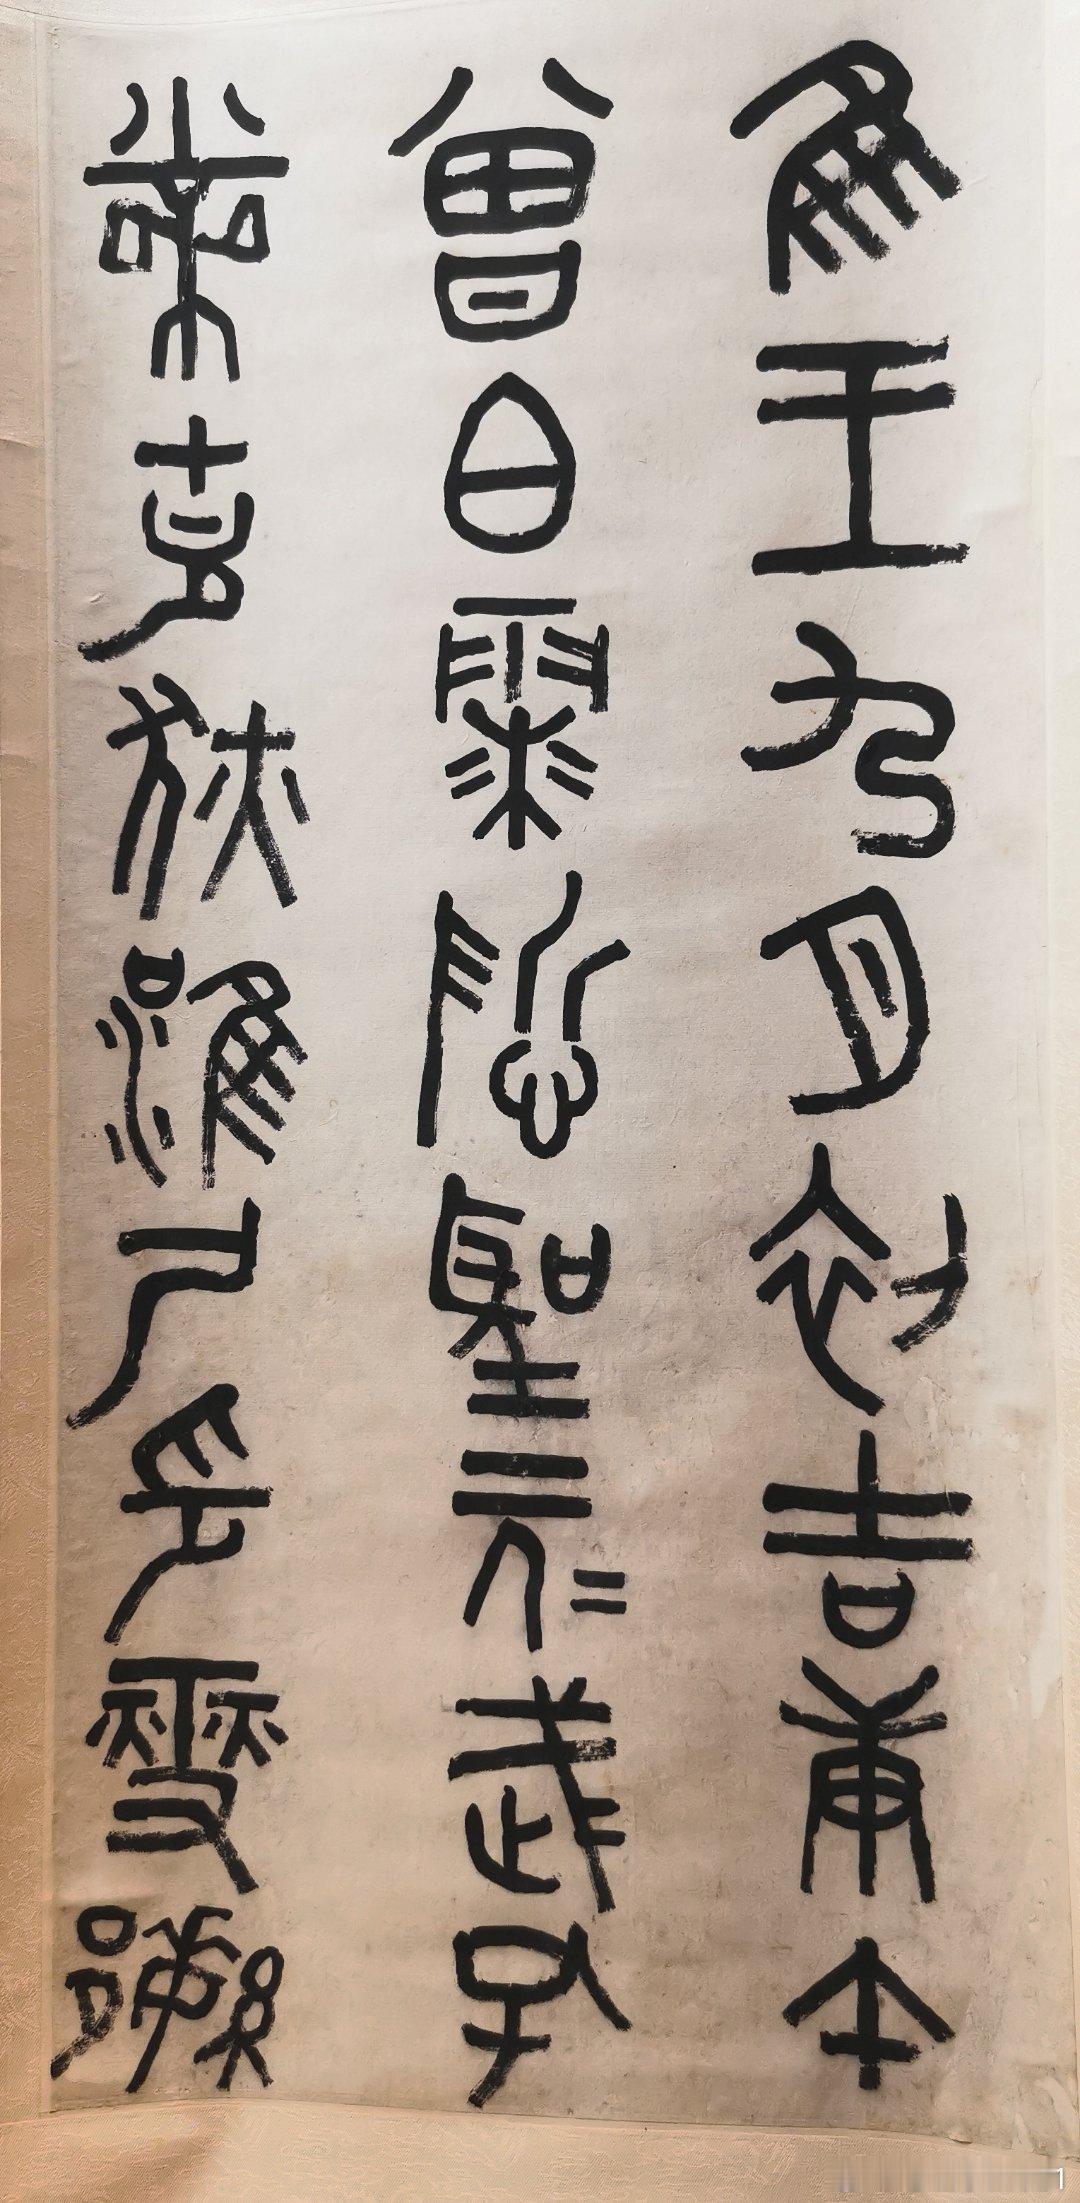 隹王九月初吉庚午
曾白霥悊聖元=武孔
黹克狄淮尸印燮繁